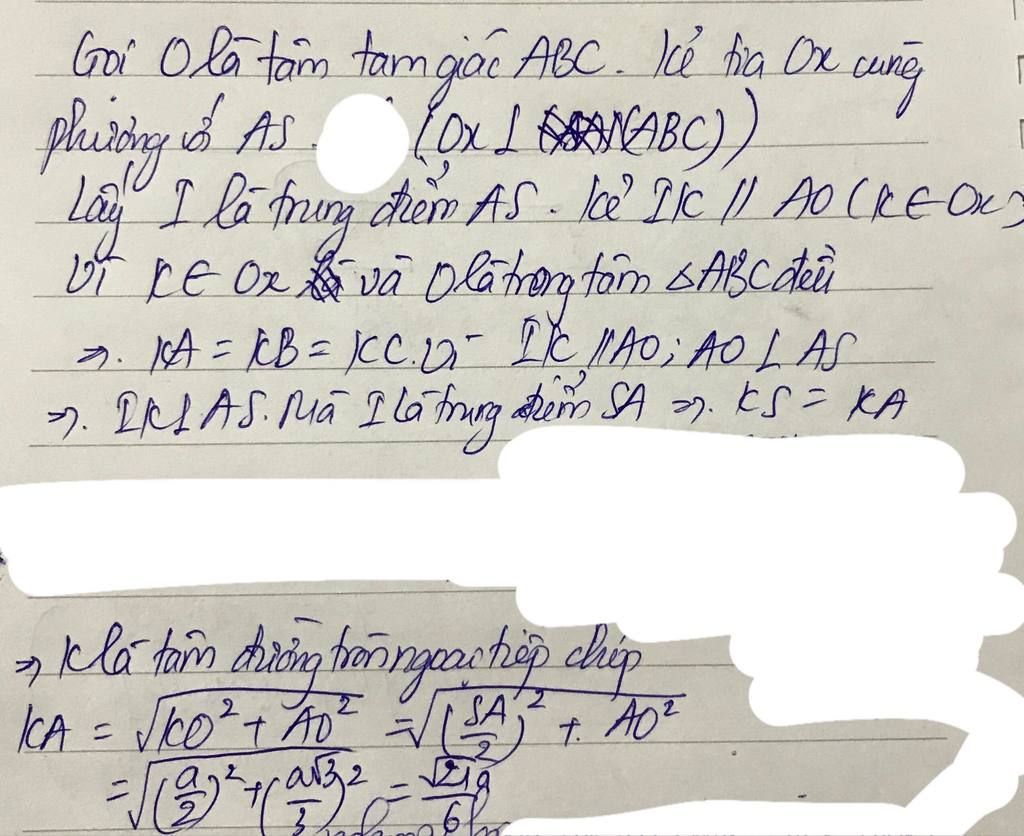 Gọi O là tâm tam giác ABC. Kẻ tia Ox cùng
phương với AS. (Ox ⊥ (ABC))
Lấy I là trung điểm AS. Kẻ IK // AO (K ∈ Ox)
Vì K ∈ Ox và O là trọng tâm ΔABC đều
⇒. KA = KB = KC. Vì IK // AO; AO ⊥ AS
⇒. IK ⊥ AS. Mà I là trung điểm SA ⇒. KS = KA
⇒ K là tâm đường tròn ngoại tiếp chóp
KA = √(KO² + AO²) = √((SA/2)² + AO²)
= √((a/2)² + (a√3/3)²) = √21a/6